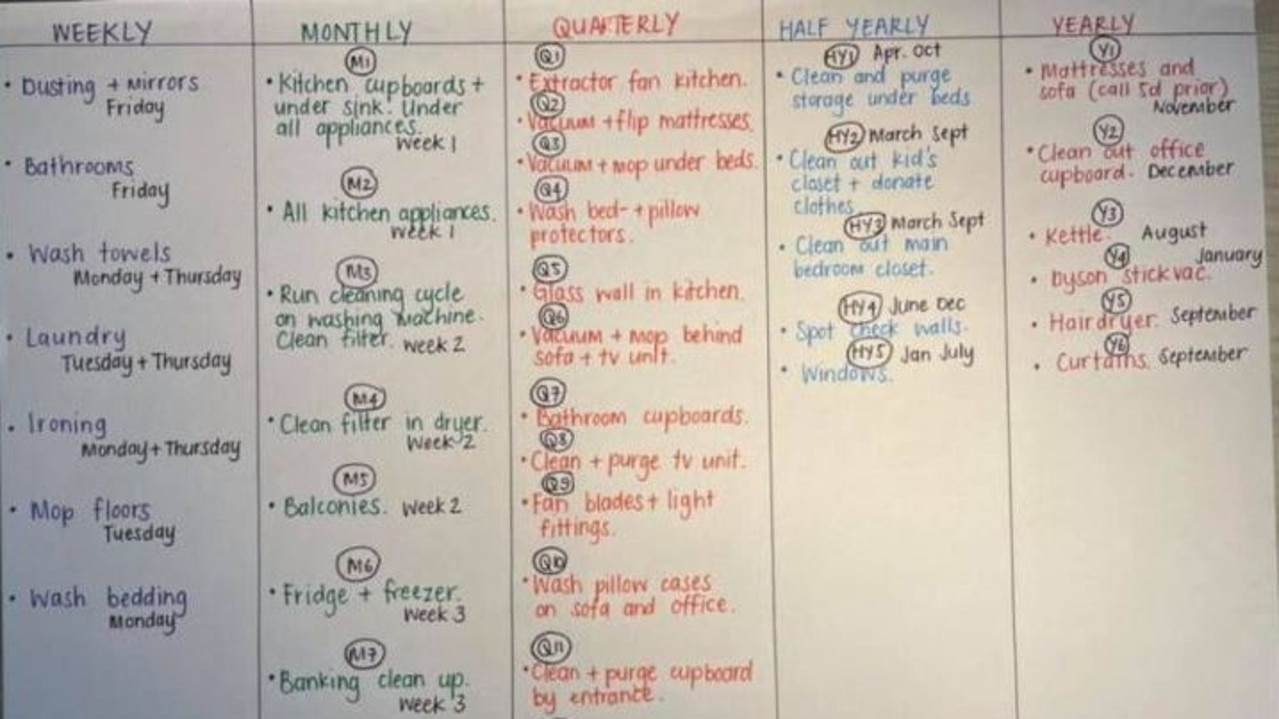 WEEKLY
• Dusting + Mirrors
Friday
• Bathrooms
Friday
• Wash towels
Monday + Thursday
• Laundry
Tuesday + Thursday
• Ironing
Monday + Thursday
• Mop floors
Tuesday
• Wash bedding
Monday
MONTHLY
M1
• Kitchen cupboards +
under sink. Under
all appliances.
Week 1
M2
• All kitchen appliances.
Week 1
M3
• Run cleaning cycle
on washing machine.
Clean filter. Week 2
M4
• Clean filter in dryer.
Week 2
M5
• Balconies. Week 2
M6
• Fridge + freezer.
Week 3
M7
• Banking clean up.
Week 3
QUARTERLY
Q1
• Extractor fan kitchen.
Q2
• Vacuum + flip mattresses.
Q3
• Vacuum + mop under beds.
Q4
• Wash bed- + pillow
protectors.
Q5
• Glass wall in kitchen.
Q6
• Vacuum + mop behind
sofa + tv unit.
Q7
• Bathroom cupboards.
Q8
• Clean + purge tv unit.
Q9
• Fan blades + light
fittings.
Q10
• Wash pillow cases
on sofa and office.
Q11
• Clean + purge cupboard
by entrance.
HALF YEARLY
HY1 Apr. Oct
• Clean and purge
storage under beds
HY2 March Sept
• Clean out kid's
closet + donate
clothes
HY3 March Sept
• Clean out main
bedroom closet.
HY4 June Dec
• Spot check walls.
HY5 Jan July
• Windows.
YEARLY
Y1
• Mattresses and
sofa (call 5d prior)
November
Y2
• Clean out office
cupboard. December
Y3
• Kettle. August
Y4 January
• Dyson stick vac.
Y5
• Hairdryer. September
Y6
• Curtains. September